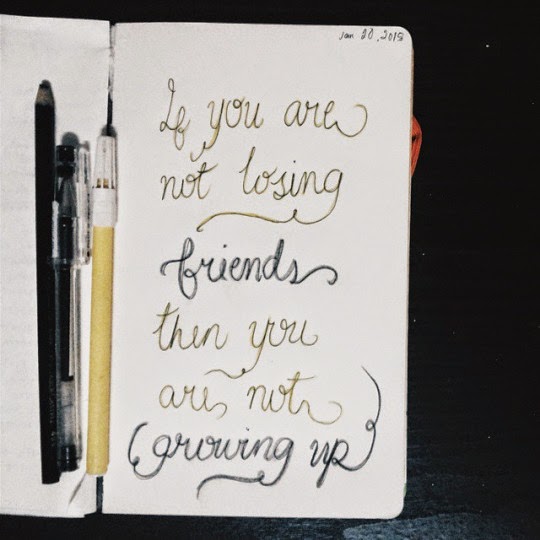 Jan 20, 2015
If you are
not losing
friends
then you
are not
(growing up)